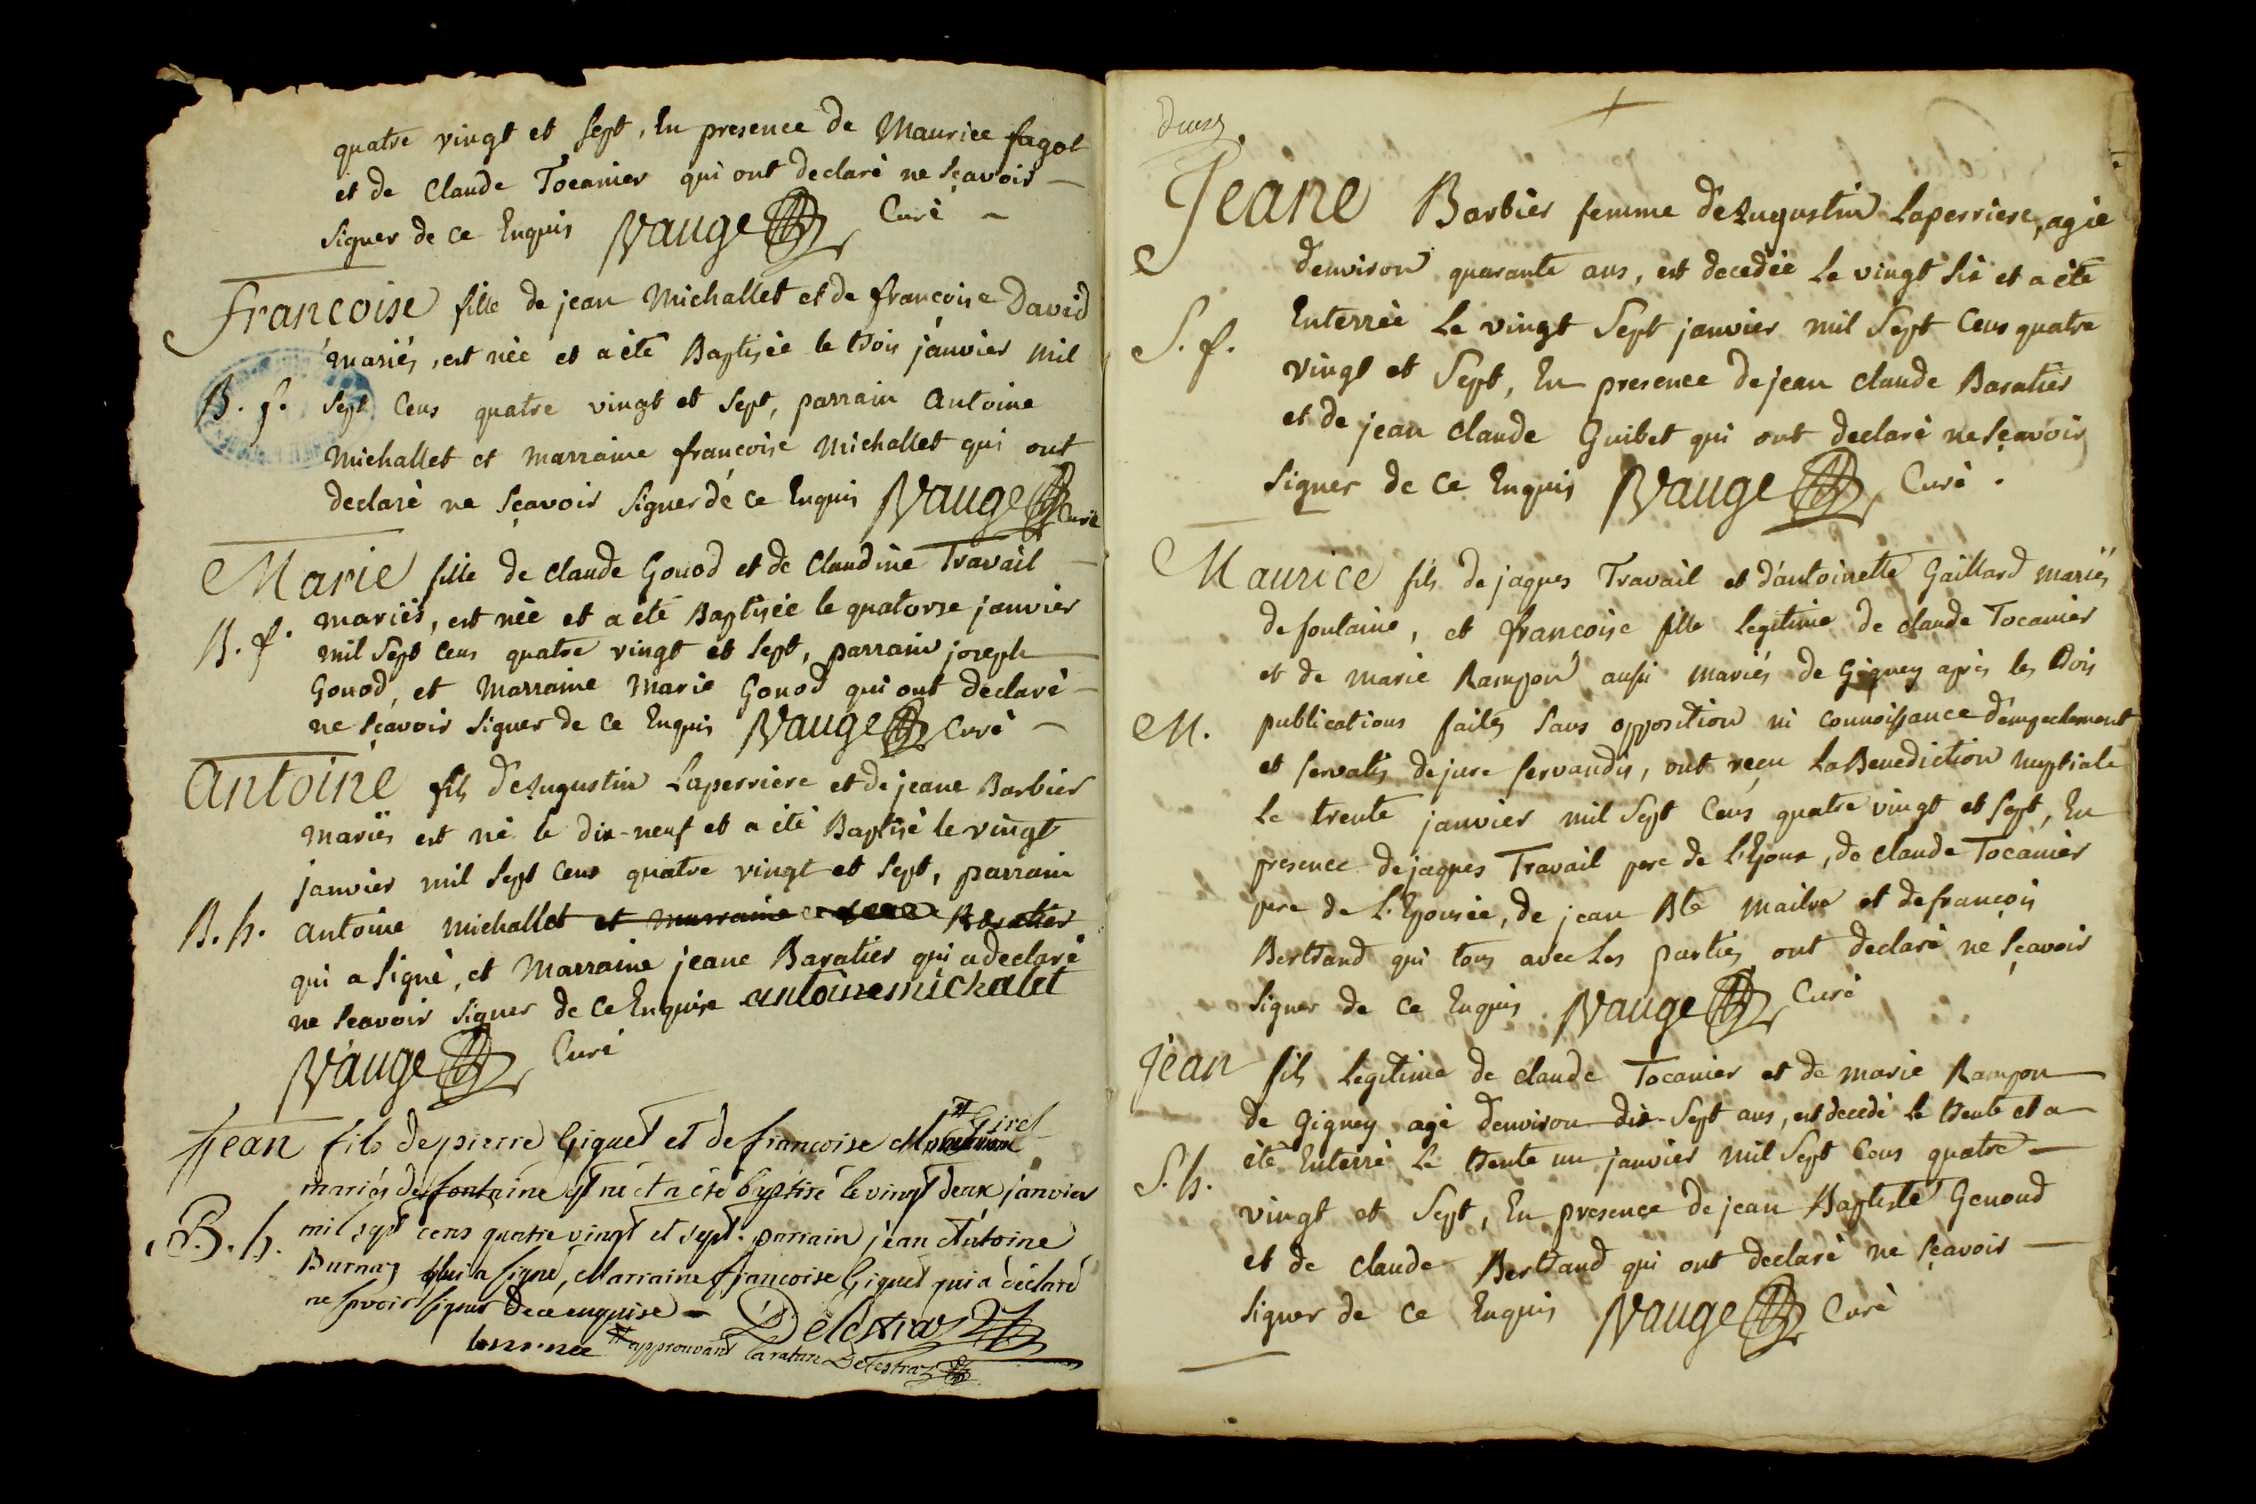 quatre vingt et sept, En presence de Maurice fagot
et de Claude Tocanier qui ont declaré ne sçavoir
signer de ce Enquis Vauge Curé
francoise fille de jean Michallet et de francoise David
mariés, est née et a été Baptisée le trois janvier mil
B. f. sept Cens quatre vingt et sept, parrain Antoine
Michallet et marraine francoise Michallet qui ont
declaré ne sçavoir signer de ce Enquis Vauge Curé
Marie fille de Claude Gouod et de Claudine Travail
mariés, est née et a été Baptisée le quatorze janvier
B. f. mil sept Cens quatre vingt et sept, parrain joseph
Gouod, et Marraine Marie Gouod qui ont declaré
ne sçavoir signer de ce Enquis Vauge Curé
Antoine fils d'Augustin Laperriere et de jeane Barbier
mariés est né le dix-neuf et a été Baptisé le vingt
janvier mil sept Cens quatre vingt et sept, parrain
B. h. antoine Michallet et marraine Baratier
qui a signé, et Marraine jeane Baratier qui a declaré
ne sçavoir signer de ce Enquise antoine michalet
Vauge Curé
Jean fils de pierre Giquet et de francoise Giret
mariés de fontaine est né et a été baptisé le vingt deux janvier
B. h. mil sept cens quatre vingt et sept. parrain jean Antoine
Burnaz qui a signé, Marraine francoise Giquet qui a déclaré
ne sçavoir signer de ce enquise Delestraz
approuvant la rature Delestraz
deux
Jeane Barbier femme d'Augustin Laperriere, agée
d'environ quarante ans, est decedée le vingt six et a été
S. f. Enterrée le vingt sept janvier mil sept Cens quatre
vingt et sept, En presence de jean claude Baratier
et de jean claude Guibet qui ont declaré ne sçavoir
signer de ce Enquis Vauge Curé.
Maurice fils de jaques Travail et d'antoinette Gaillard mariés
de fontaine, et francoise fille legitime de claude Tocanier
et de marie Rampon aussi mariés de Gigney après les trois
M. publications faites sans opposition ni connoissance d'empechement
et servatis de jure servandis, ont reçu La Benediction nuptiale
le trente janvier mil sept Cens quatre vingt et sept, En
presence de jaques Travail pere de L'Epoux, de claude Tocanier
pere de L'Epousée, de jean Bte Maitre et de francois
Bertrand qui tous avec Les parties ont declaré ne sçavoir
signer de ce Enquis Vauge Curé
jean fils legitime de claude Tocanier et de marie Rampon
de Gigney agé d'environ dix-sept ans, est decedé le trente et a
S. h. été Enterré le trente un janvier mil sept Cens quatre
vingt et sept, En presence de jean Baptiste Genoud
et de claude Bertrand qui ont declaré ne sçavoir
signer de ce Enquis Vauge Curé